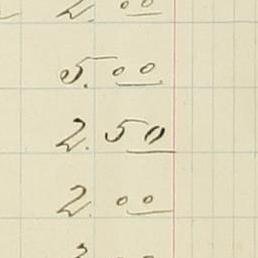 2.00
5.00
2.50
2.00